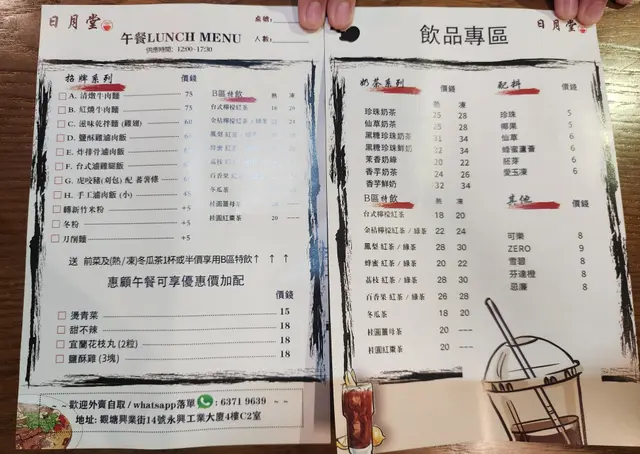 日月堂
午餐LUNCH MENU
供應時間: 12:00-17:30
桌號:
人數:
招牌系列 價錢
A. 清燉牛肉麵 75
B. 紅燒牛肉麵 75
C. 滋味乾拌麵 (雞翅) 60
D. 鹽酥雞滷肉飯
E. 炸排骨滷肉飯
F. 台式滷雞腿飯
G. 虎咬豬(刈包) 配 蕃薯條
H. 手工滷肉飯 (小)
轉新竹米粉 +5
冬粉 +5
刀削麵 +5
B區特飲 熱 凍
台式檸檬紅茶 18 20
金桔檸檬紅茶 / 綠茶 22 24
鳳梨 紅茶 / 綠茶
蜂蜜 紅茶 / 綠茶
荔枝 紅茶 / 綠茶
百香果 紅茶 / 綠茶
冬瓜茶
桂圓薑母茶 20 ---
桂圓紅棗茶 20 ---
送 前菜及(熱 / 凍)冬瓜茶1杯或半價享用B區特飲↑ ↑ ↑
惠顧午餐可享優惠價加配
價錢
燙青菜 15
甜不辣 18
宜蘭花枝丸 (2粒) 18
鹽酥雞 (3塊) 18
~ 歡迎外賣自取 / whatsapp落單 : 6371 9639 ~ ~
地址: 觀塘興業街14號永興工業大廈4樓C2室
飲品專區
日月堂
奶茶系列 價錢
熱 凍
珍珠奶茶 25 28
仙草奶茶 25 28
黑糖珍珠奶茶 31 34
黑糖珍珠鮮奶 32 34
茉香奶綠 20 22
香芋奶茶 24 26
香芋鮮奶 32 34
B區特飲 熱 凍
台式檸檬紅茶 18 20
金桔檸檬紅茶 / 綠茶 22 24
鳳梨 紅茶 / 綠茶 28 30
蜂蜜 紅茶 / 綠茶 20 22
荔枝 紅茶 / 綠茶 28 30
百香果 紅茶 / 綠茶 26 28
冬瓜茶 18 20
桂圓薑母茶 20 ---
桂圓紅棗茶 20 ---
配料 價錢
珍珠 5
椰果 5
仙草 6
蜂蜜蘆薈 6
胚芽 6
愛玉凍 6
其他 價錢
可樂 8
ZERO 9
雪碧 8
芬達橙 8
忌廉 8